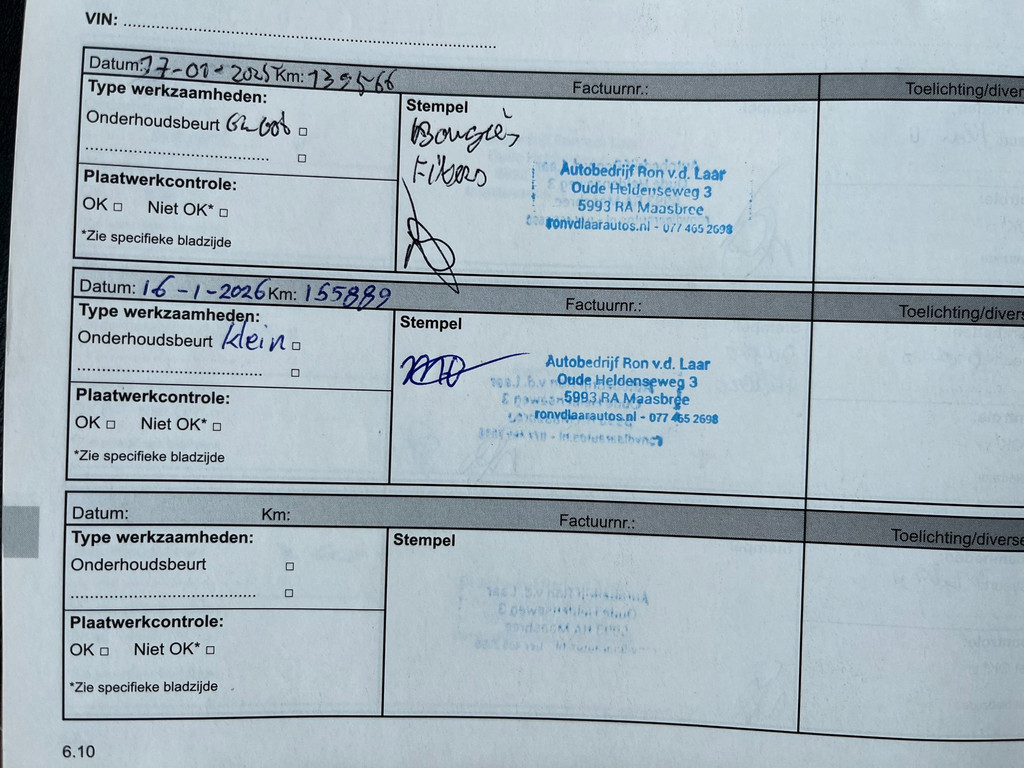 VIN: ................................................
Datum: 17-01-2025 Km: 139566 Factuurnr.: Toelichting/diver
Type werkzaamheden:
Onderhoudsbeurt Groot □
................................ □
Plaatwerkcontrole:
OK □ Niet OK* □
*Zie specifieke bladzijde
Stempel
Bougiès
Filters
Autobedrijf Ron v.d. Laar
Oude Heldenseweg 3
5993 RA Maasbree
ronvdlaarautos.nl - 077 465 2698
Datum: 16-1-2026 Km: 155889 Factuurnr.: Toelichting/divers
Type werkzaamheden:
Onderhoudsbeurt klein □
................................ □
Plaatwerkcontrole:
OK □ Niet OK* □
*Zie specifieke bladzijde
Stempel
Autobedrijf Ron v.d. Laar
Oude Heldenseweg 3
5993 RA Maasbree
ronvdlaarautos.nl - 077 465 2698
Datum: Km: Factuurnr.: Toelichting/diverse
Type werkzaamheden:
Onderhoudsbeurt □
................................ □
Plaatwerkcontrole:
OK □ Niet OK* □
*Zie specifieke bladzijde
Stempel
6.10